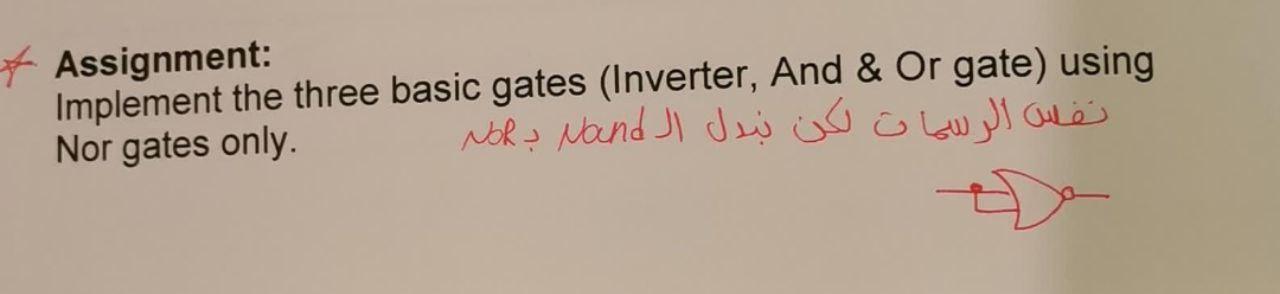 Assignment:
Implement the three basic gates (Inverter, And & Or gate) using
Nor gates only.
نفس الرسمات لكن نبدل ال Nand بـ NOR